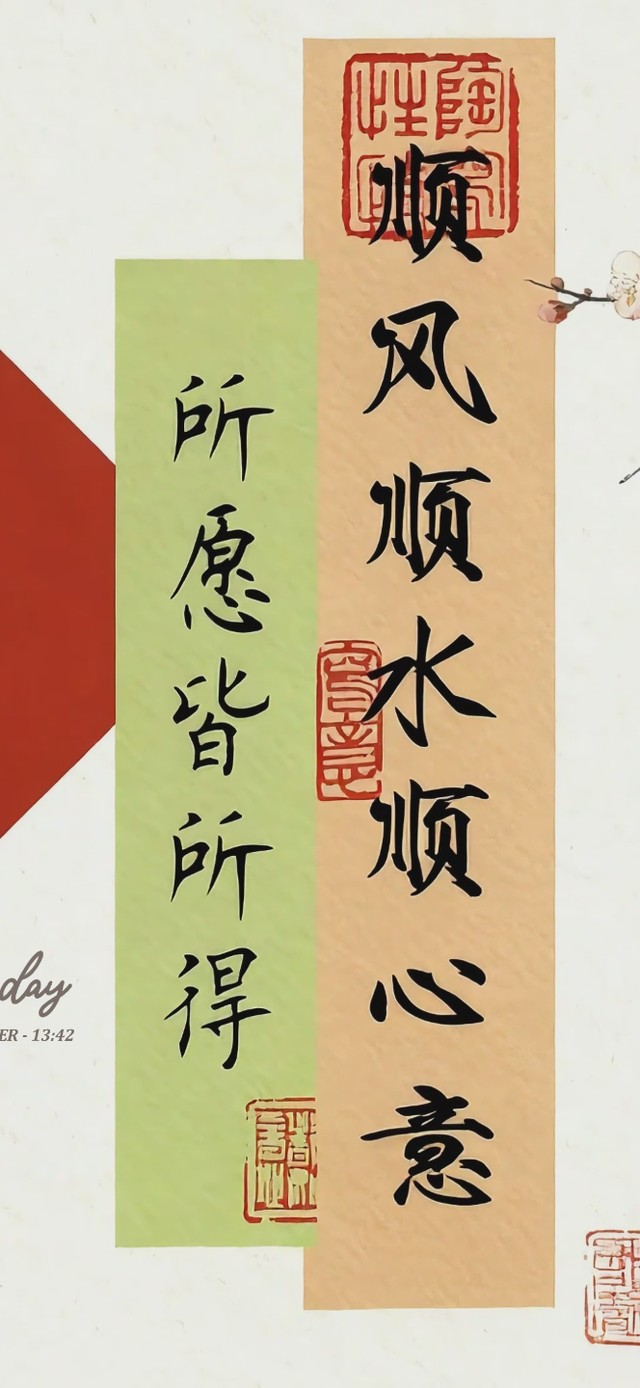 顺风顺水顺心意
所愿皆所得
day
ER - 13:42